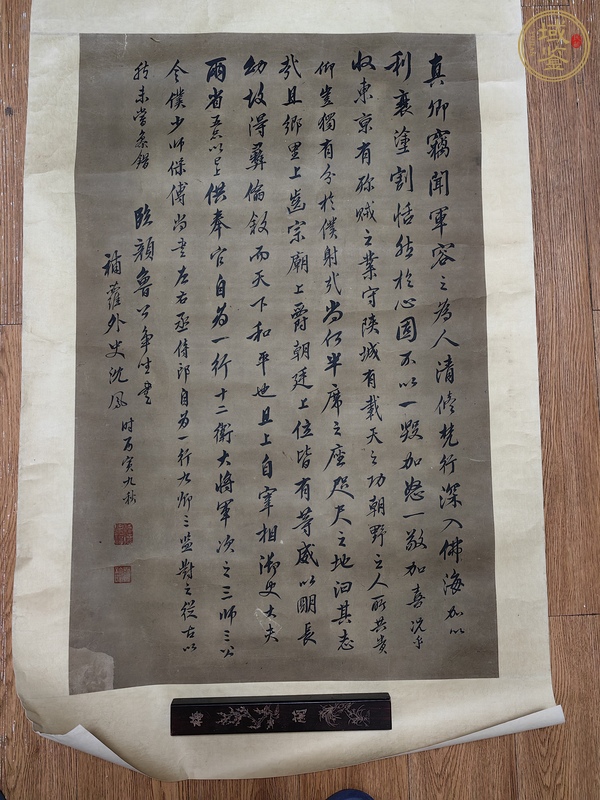 真卿竊聞軍容之為人清修梵行深入佛海加以
利衰塗割恬然於心固不以一毀加怒一敬加喜況乎
收東京有殄賊之業守陝城有戴天之功朝野之人所共貴
仰豈獨有分於僕射哉尚何半席之座咫尺之地汩其志
哉且鄉里上齒宗廟上爵朝廷上位皆有等威以明長
幼故得彝倫敘而天下和平也且上自宰相御史大夫
兩省五品以上供奉官自為一行十二衛大將軍次之三師三公
令僕少師保傅尚書左右丞侍郎自為一行九卿三監對之從古以
然未嘗參錯
臨顏魯公爭坐書
補蘿外史沈鳳 時丙寅九秋
域鉴